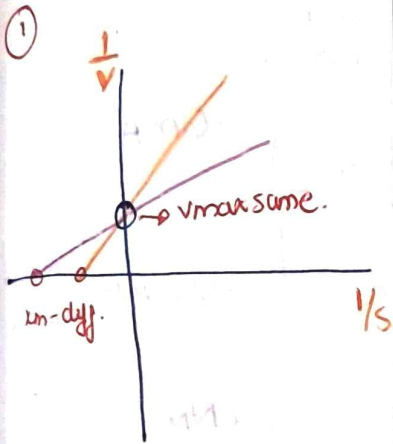 1
1
V
Vmax same.
km-diff.
1/S